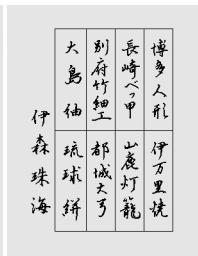 博多人形
伊万里焼
長崎べっ甲
山鹿灯籠
別府竹細工
都城大弓
大島紬
琉球絣
伊森珠海